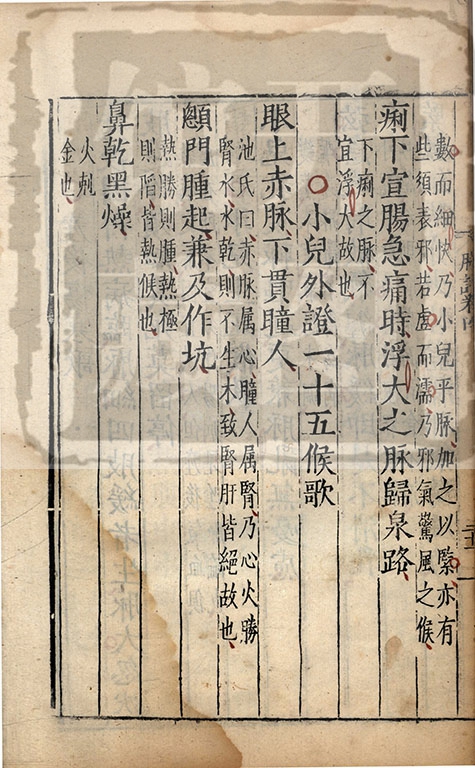 數而細快乃小兒平脉加之以緊亦有
些須表邪若虛而濡乃邪氣驚風之候
痢下宣腸急痛時浮大之脉歸泉路
下痢之脉不
宜浮大故也
○小兒外證一十五候歌
眼上赤脉下貫瞳人
池氏曰赤脉属心瞳人属腎乃心火勝
腎水水乾則不生木致腎肝皆絕故也
顖門腫起兼及作坑
熱勝則腫熱極
則陷皆熱候也
鼻乾黑燥
火剋
金也